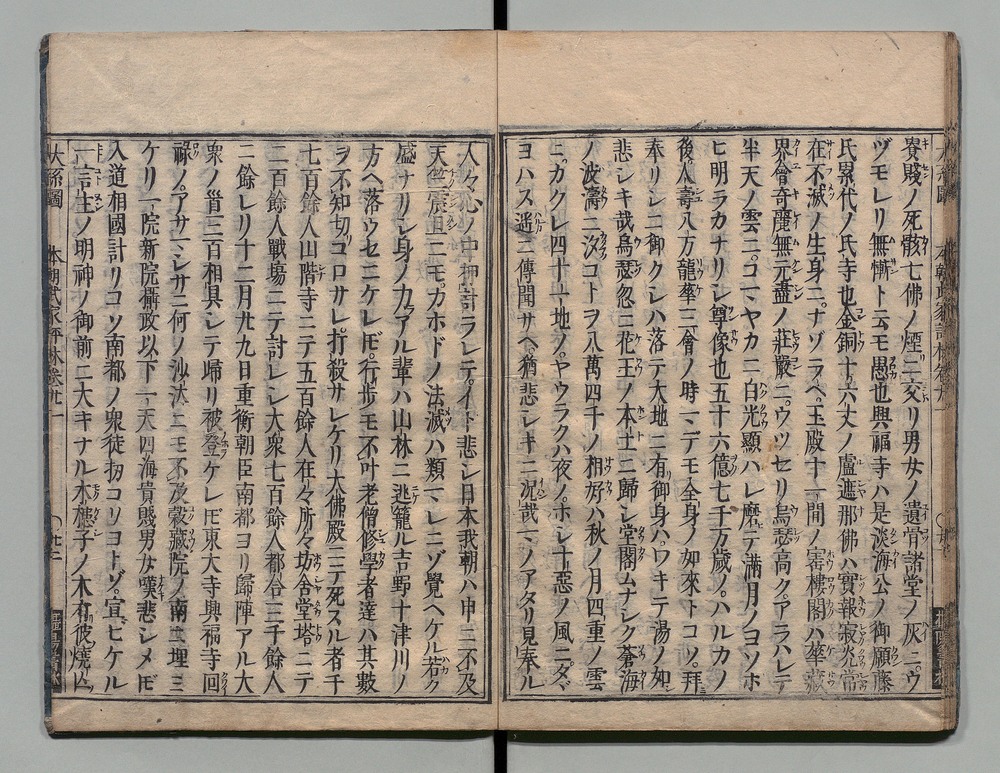 貴賤ノ死骸七佛ノ煙ニ交リ男女ノ遺骨諸堂ノ灰ニウ
ヅモレリ無慚ト云モ愚也興福寺ハ是淡海公ノ御願藤
氏累代ノ氏寺也金銅十六丈ノ盧遮那佛ハ實報寂光常
在不滅ノ生身ニナゾラヘ玉殿十一間ノ宻樓閣ハ華藏
界會奇麗無元盡ノ莊嚴ニウツセリ烏瑟高クアラハレテ
半天ノ雲ニコマヤカニ白光顯ハレ磨テ滿月ノヨソホ
ヒ明ラカナリシ尊像也五十六億七千万歳ノハルカノ
後人壽八万龍華三會ノ時マデモ全身ノ如來トコソ拜
奉リシニ御クシハ落テ大地ニ有御身ハワキテ湯ノ如
悲シキ哉烏瑟忽ニ花王ノ本土ニ歸シ堂閣ムナシク蒼海
ノ波濤ニ汲コトヲ八萬四千ノ相好ハ秋ノ月四重ノ雲
ニカクレ四十一地ノヤウラクハ夜ノホシ十惡ノ風ニタヾ
ヨハス遥ニ傳聞サヘ猶悲シキニ況哉マノアタリ見奉ル
人々心ノ中押計ラレテイト悲シ日本我朝ハ申ニ不及
天竺震旦ニモカホドノ法滅ハ類マレニゾ覺ヘケル若ク
盛ナリシ身ノ力アル輩ハ山林ニ逃籠ル吉野十津川ノ
方ヘ落ウセニケレドモ行歩モ不叶老僧修學者達ハ其數
ヲ不知切コロサレ打殺サレケリ大佛殿ニテ死スル者千
七百餘人山階寺ニテ五百餘人在々所々坊舎堂塔ニテ
二百餘人戰塲ニテ討レシ大衆七百餘人都合三千餘人
ニ餘レリ十二月廿九日重衡朝臣南都ヨリ歸陣アル大
衆ノ首三百相具シテ歸リ被登ケレドモ東大寺興福寺回
祿ノアサマシサニ何ノ沙汰ニモ不及穀藏院ノ南ニ埋ミ
ケリ一院新院攝政以下一天四海貴賤男女嘆悲シメドモ
入道相國計リコソ南都ノ衆徒扨コリヨトゾ宣ヒケル
一言主ノ明神ノ御前ニ大キナル木槵子ノ木有彼燒亡